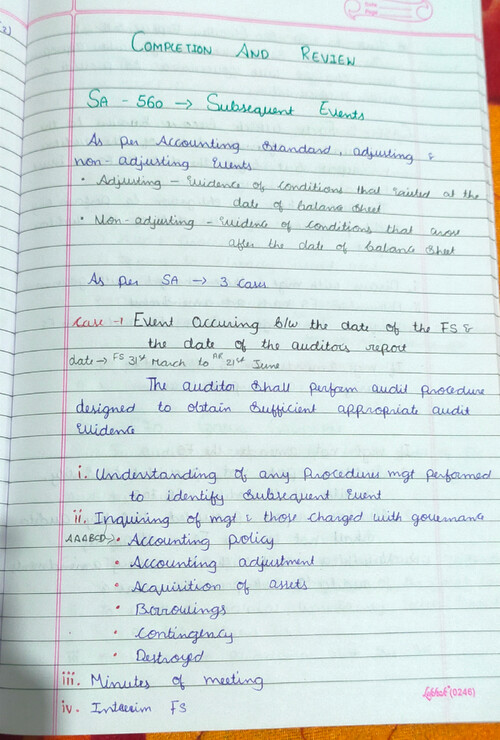 Date
Page
COMPLETION AND REVIEW
SA - 560 → Subsequent Events
As per Accounting Standard, adjusting &
non-adjusting Events
• Adjusting - Evidence of conditions that existed at the
date of balance sheet
• Non-adjusting - Evidence of conditions that arose
after the date of balance sheet
As per SA → 3 Cases
Case -1 Event Occuring b/w the date of the FS &
the date of the auditor's report
date → FS 31st March to AR 21st June
The auditor shall perform audit procedure
designed to obtain sufficient appropriate audit
Evidence
i. Understanding of any Procedures mgt performed
to identify subsequent Event
ii. Inquiring of mgt & those charged with governance
AAABCD → • Accounting policy
• Accounting adjustment
• Acquisition of assets
• Borrowings
• Contingency
• Destroyed
iii. Minutes of meeting
iv. Interim FS
(0246)